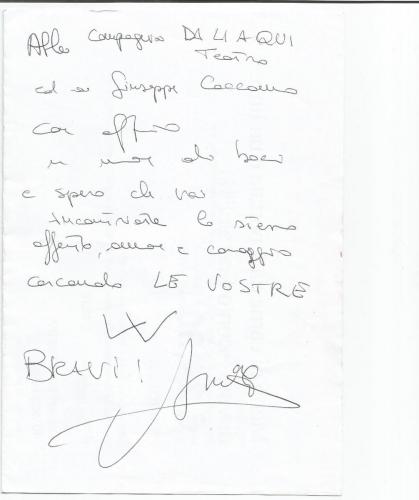 Alla Compagnia DALIAQUI
Teatro
ed a Giuseppe
con affetto
un mare di baci
e spero che voi
incontriate lo stesso
affetto, amore e coraggio
cercando LE VOSTRE
BRAVI!